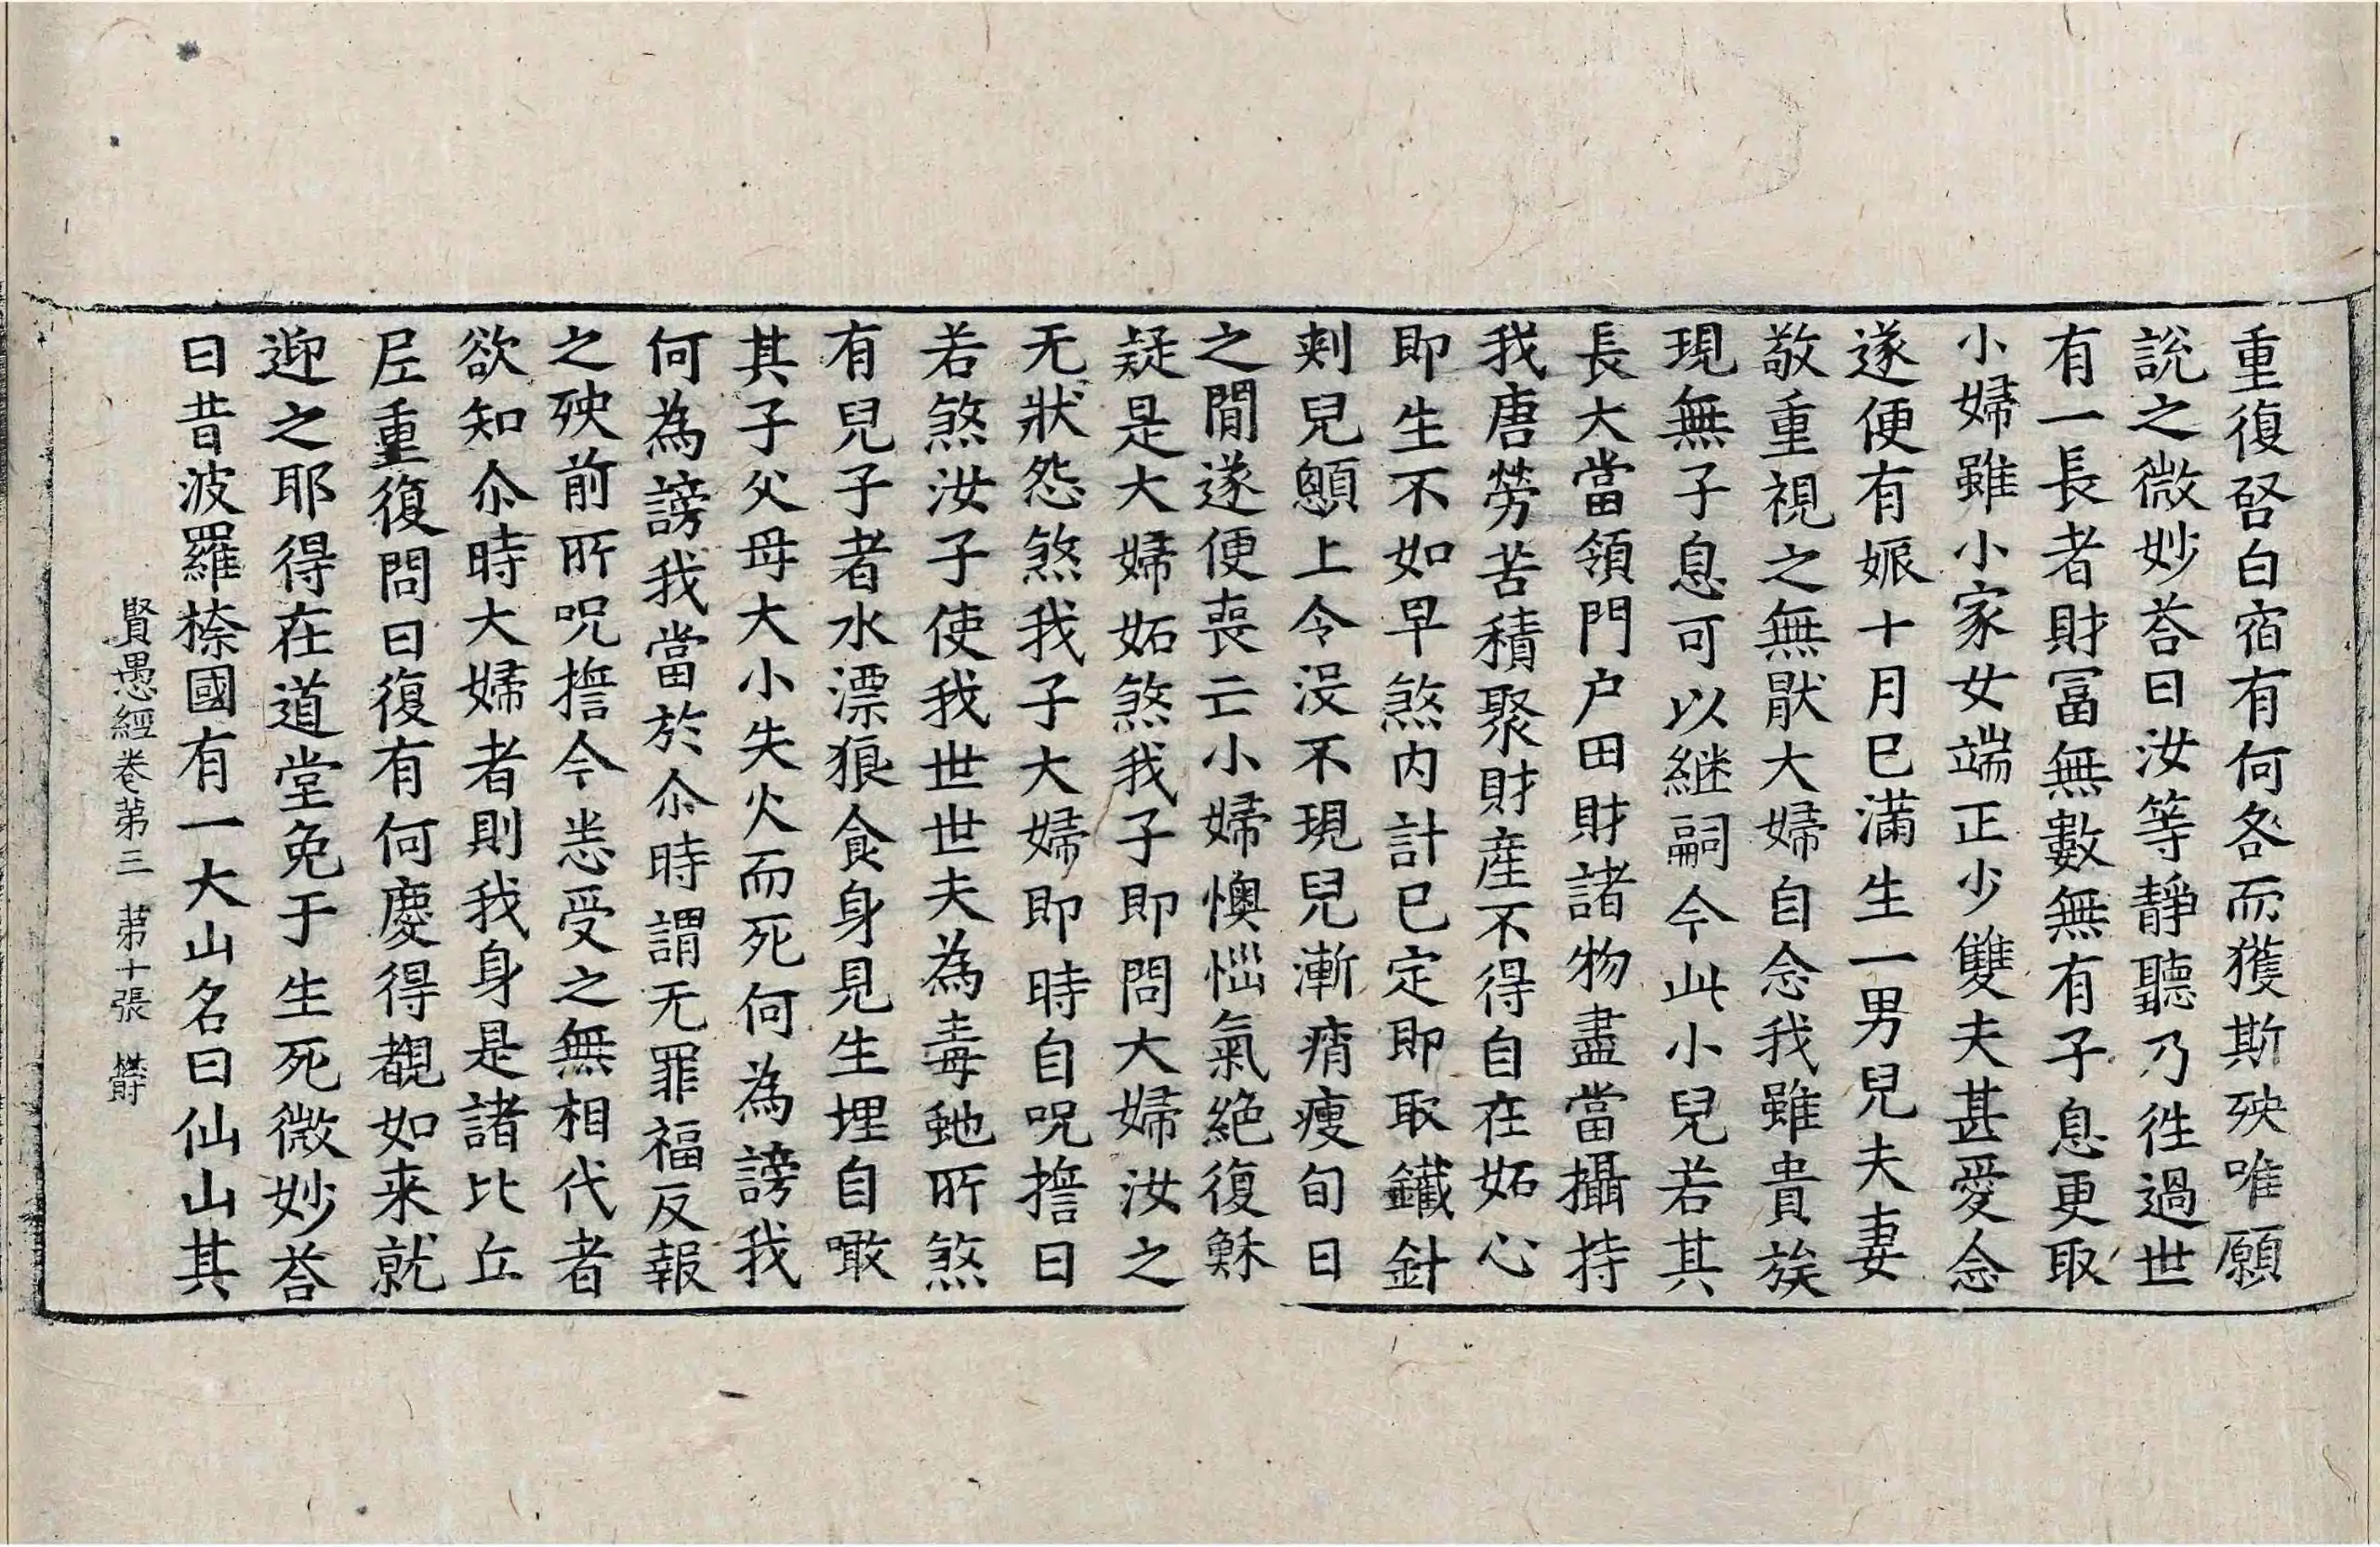 重復啓白宿有何咎而獲斯殃唯願
說之微妙荅曰汝等静聽乃徃過世
有一長者財冨無數無有子息更取
小婦雖小家女端正少雙夫甚愛念
遂便有娠十月已滿生一男兒夫妻
敬重視之無猒大婦自念我雖貴族
現無子息可以継嗣今此小兒若其
長大當領門户田財諸物盡當攝持
我唐勞苦積聚財產不得自在妬心
即生不如早煞内計已定即取鐵針
刺兒顖上令沒不現兒漸痟瘦旬日
之間遂便喪亡小婦懊惱氣絕復穌
疑是大婦妬煞我子即問大婦汝之
无狀怨煞我子大婦即時自呪擔曰
若煞汝子使我世世夫為毒虵所煞
有兒子者水漂狼食身見生埋自噉
其子父母大小失火而死何為謗我
何為謗我當於尒時謂无罪福反報
之殃前所呪擔今悉受之無相代者
欲知尒時大婦者則我身是諸比丘
尼重復問曰復有何慶得覩如来就
迎之耶得在道堂免于生死微妙荅
曰昔波羅㮈國有一大山名曰仙山其
賢愚經卷苐三　苐十張　欝